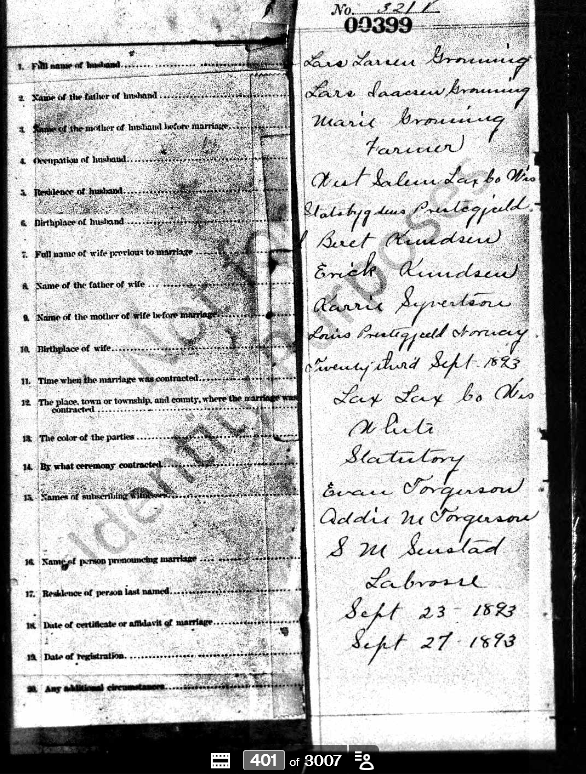 No. 321
00399
1. Full name of husband Lars Larsen Gronning
2. Name of the father of husband Lars Isaacsen Gronning
3. Name of the mother of husband before marriage Marie Gronning
4. Occupation of husband Farmer
5. Residence of husband West Salem Lax Co Wis
6. Birthplace of husband Statsbygdens Prestegjeld
7. Full name of wife previous to marriage Beret Knudsen
8. Name of the father of wife Erick Knudsen
9. Name of the mother of wife before marriage Karrie Syvertson
10. Birthplace of wife Prestegjeld Norway
11. Time when the marriage was contracted Twenty third Sept 1893
12. The place, town or township, and county, where the marriage was
contracted Lax Lax Co Wis
13. The color of the parties White
14. By what ceremony contracted Statutory
15. Names of subscribing witnesses Evan Torgerson
Addie M Torgerson
16. Name of person pronouncing marriage S M
17. Residence of person last named Labrosse
18. Date of certificate or affidavit of marriage Sept 23 - 1893
19. Date of registration Sept 27 - 1893
20. Any additional circumstances
Not for
Identity Purposes
401 of 3007